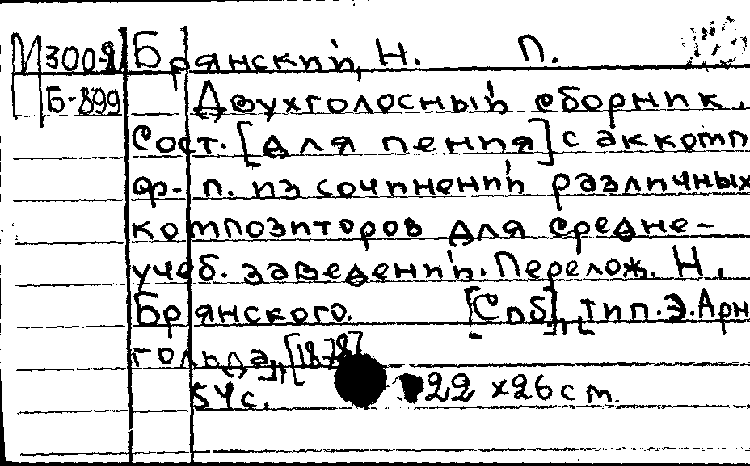 М 3002 Брянский, Н. П.
Б-899 Двухголосный сборник.
Сост. [для пения] с аккомп
ф.-п. из сочинений различных
композиторов для средне-
учеб. заведений. Перелож. Н.
Брянского. [Спб], тип. Э. Арн
гольда,
54 с. 22 x 26 cm.